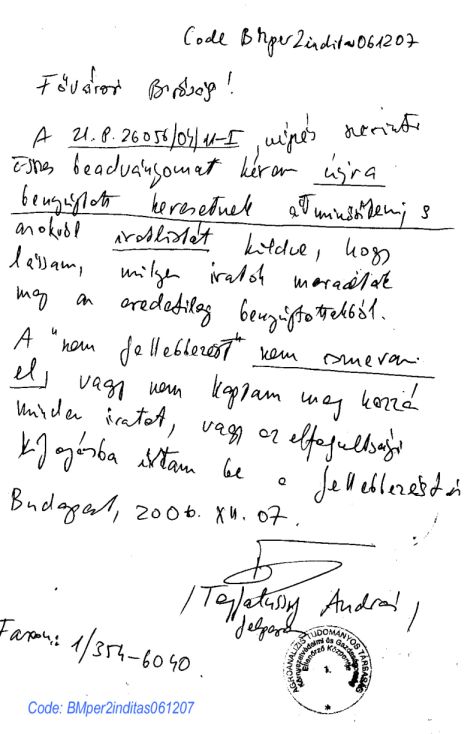 Code BMper2inditas061207
Fővárosi Bíróság!
A 21.P.26056/04/11-I végzés szerinti
összes beadványomat kérem újra
benyújtott keresetnek átminősíteni, s
azokból iratlistát küldve, hogy
lássam, milyen iratok maradtak
meg az eredetileg benyújtottakból.
A "nem fellebbezést" nem ismerem
el, vagy nem kaptam meg hozzá
minden iratot, vagy az elfogultsági
kifogásba írtam be a fellebbezést is
Budapest, 2006. XII. 07.
/ András /
felperes
Faxon: 1/354-6040.
AGROANALÍZIS TUDOMÁNYOS TÁRSASÁG
Környezetvédelmi és Gazdasági
Ellenőrző Központja
1.
Code: BMper2inditas061207